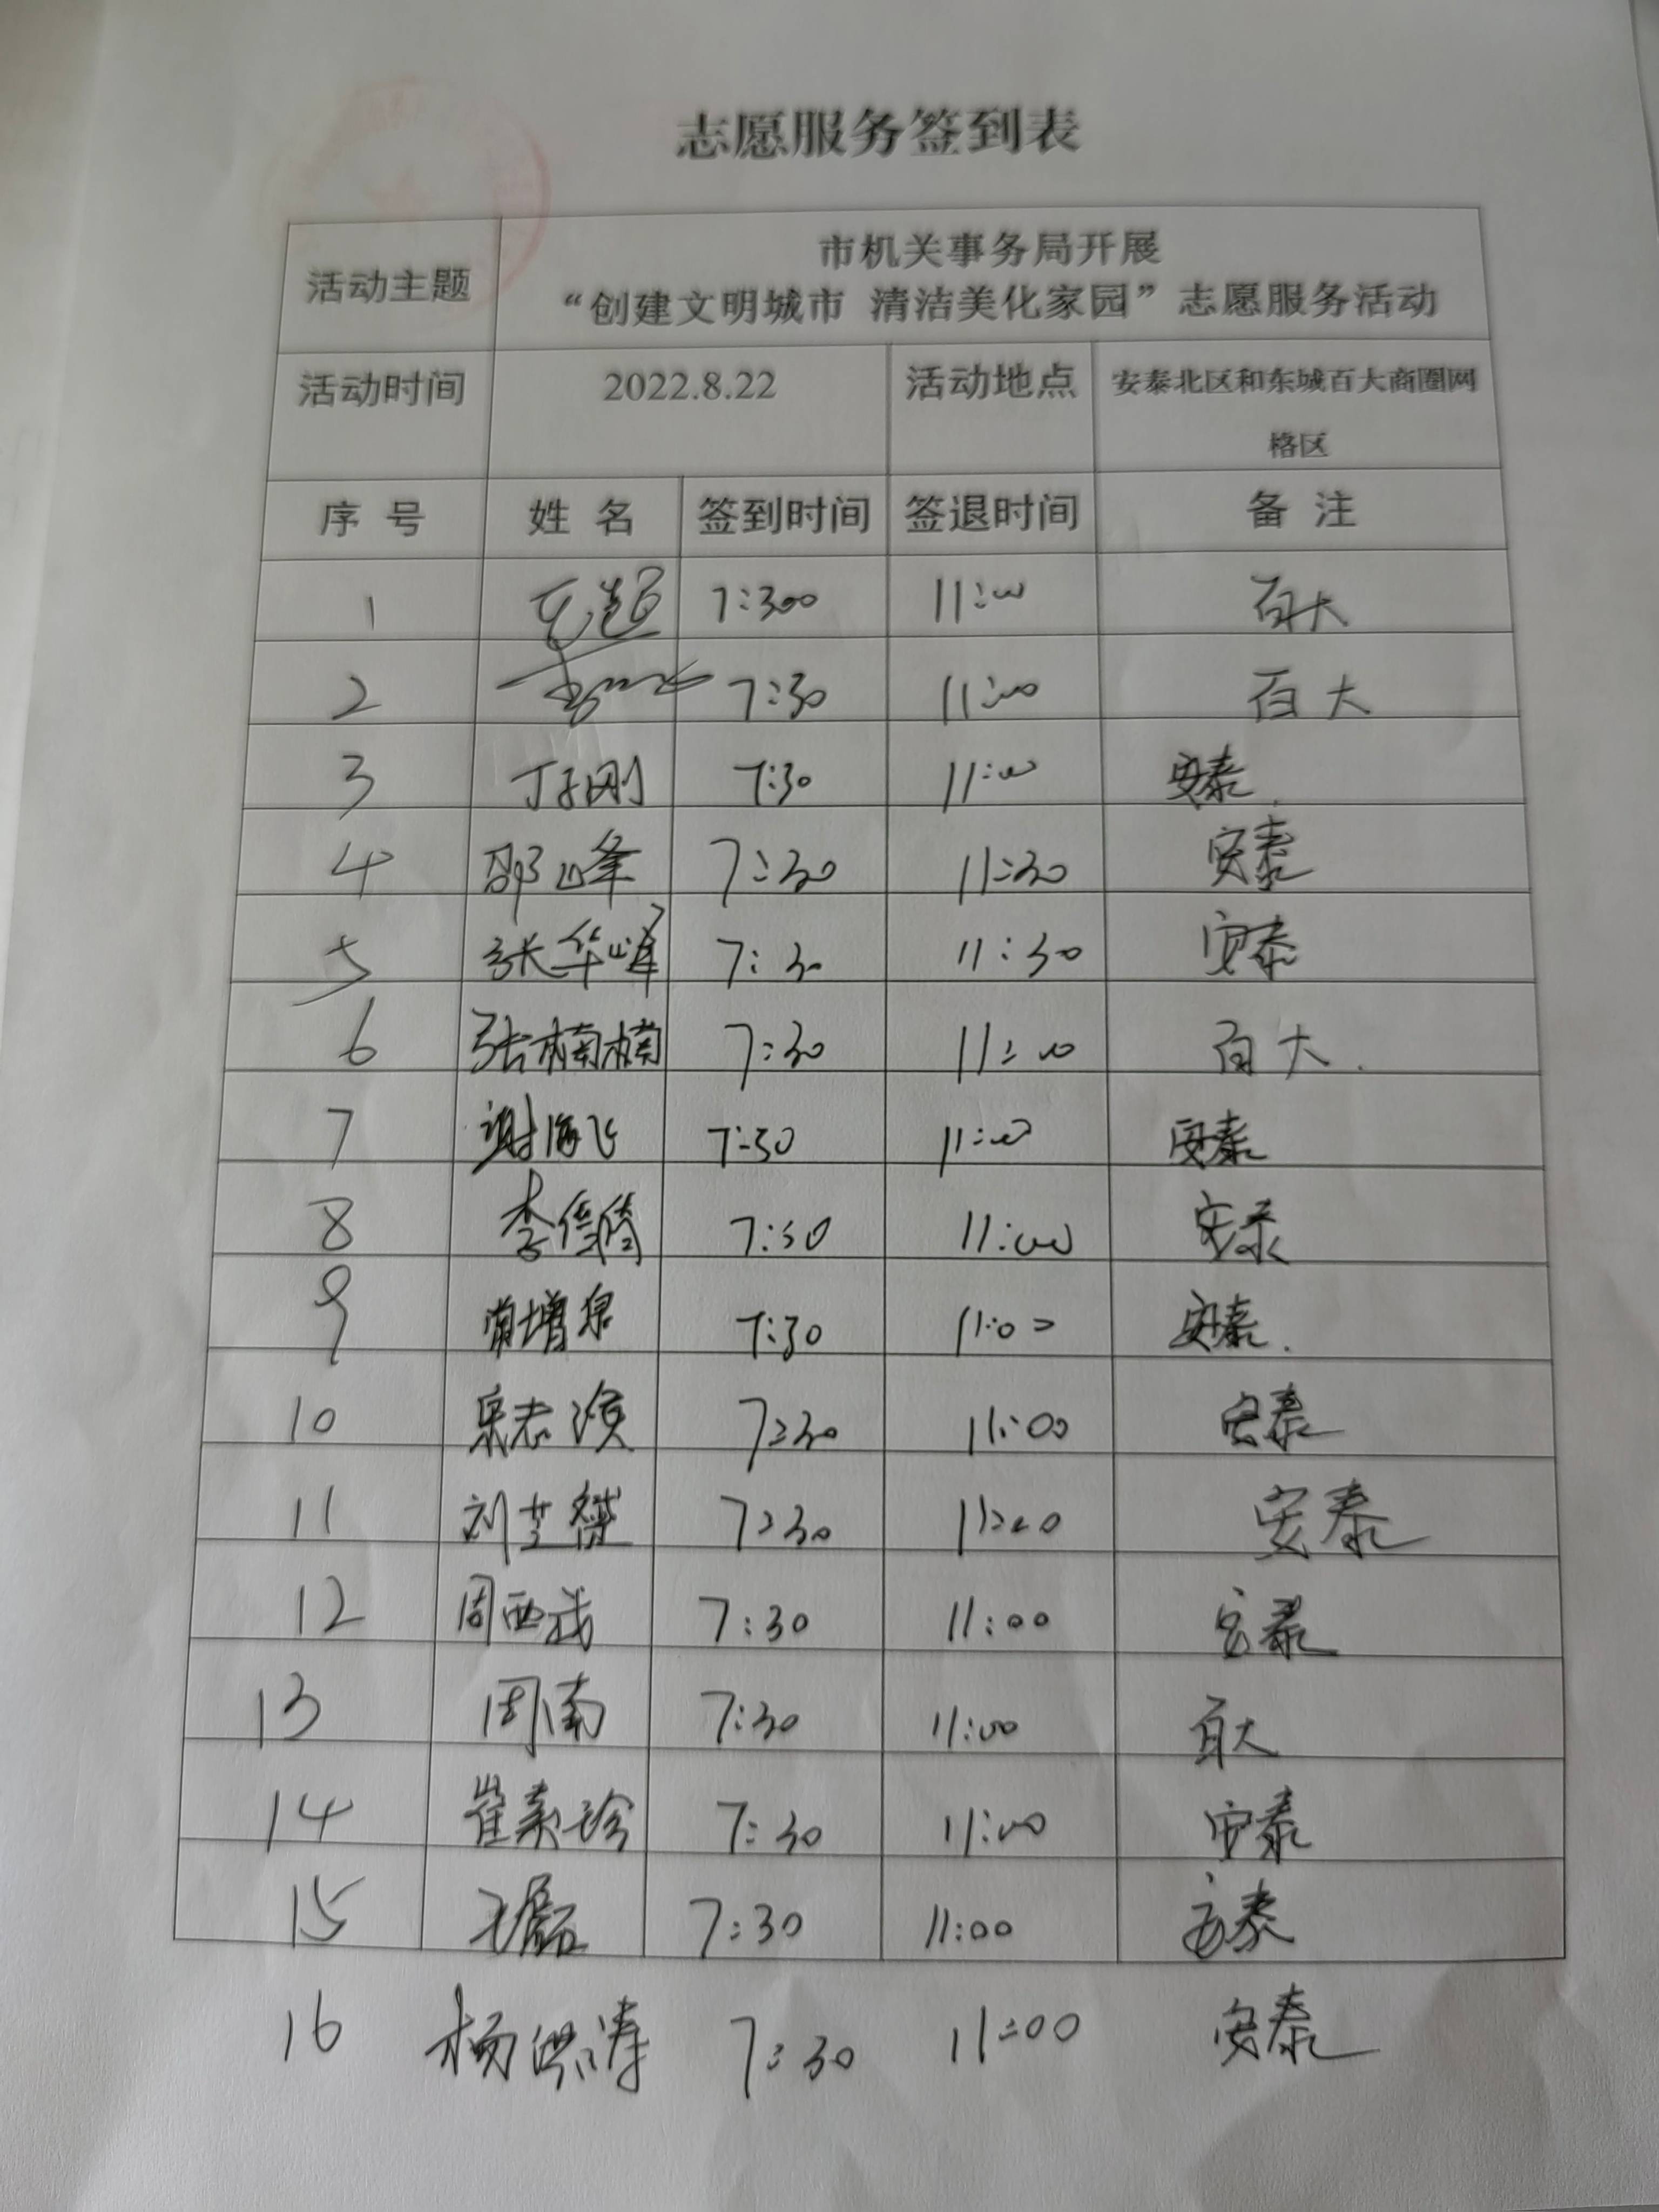 志愿服务签到表
活动主题
市机关事务局开展
“创建文明城市 清洁美化家园”志愿服务活动
活动时间 2022.8.22 活动地点 安泰北区和东城百大商圈网
格区
序号 姓名 签到时间 签退时间 备注
1 7:300 11:00 百大
2 7:30 11:00 百大
3 丁子刚 7:30 11:00 安泰
4 邵山峰 7:30 11:30 安泰
5 张华峰 7:30 11:30 安泰
6 张楠楠 7:30 11:00 百大.
7 谢海飞 7:30 11:00 安泰
8 7:30 11:00 安泰
9 7:30 11:00 安泰.
10 7:30 11:00 安泰
11 7:30 11:00 安泰
12 7:30 11:00 安泰
13 周南 7:30 11:00 百大
14 崔素珍 7:30 11:00 安泰
15 7:30 11:00 安泰
16 杨洪涛 7:30 11:00 安泰